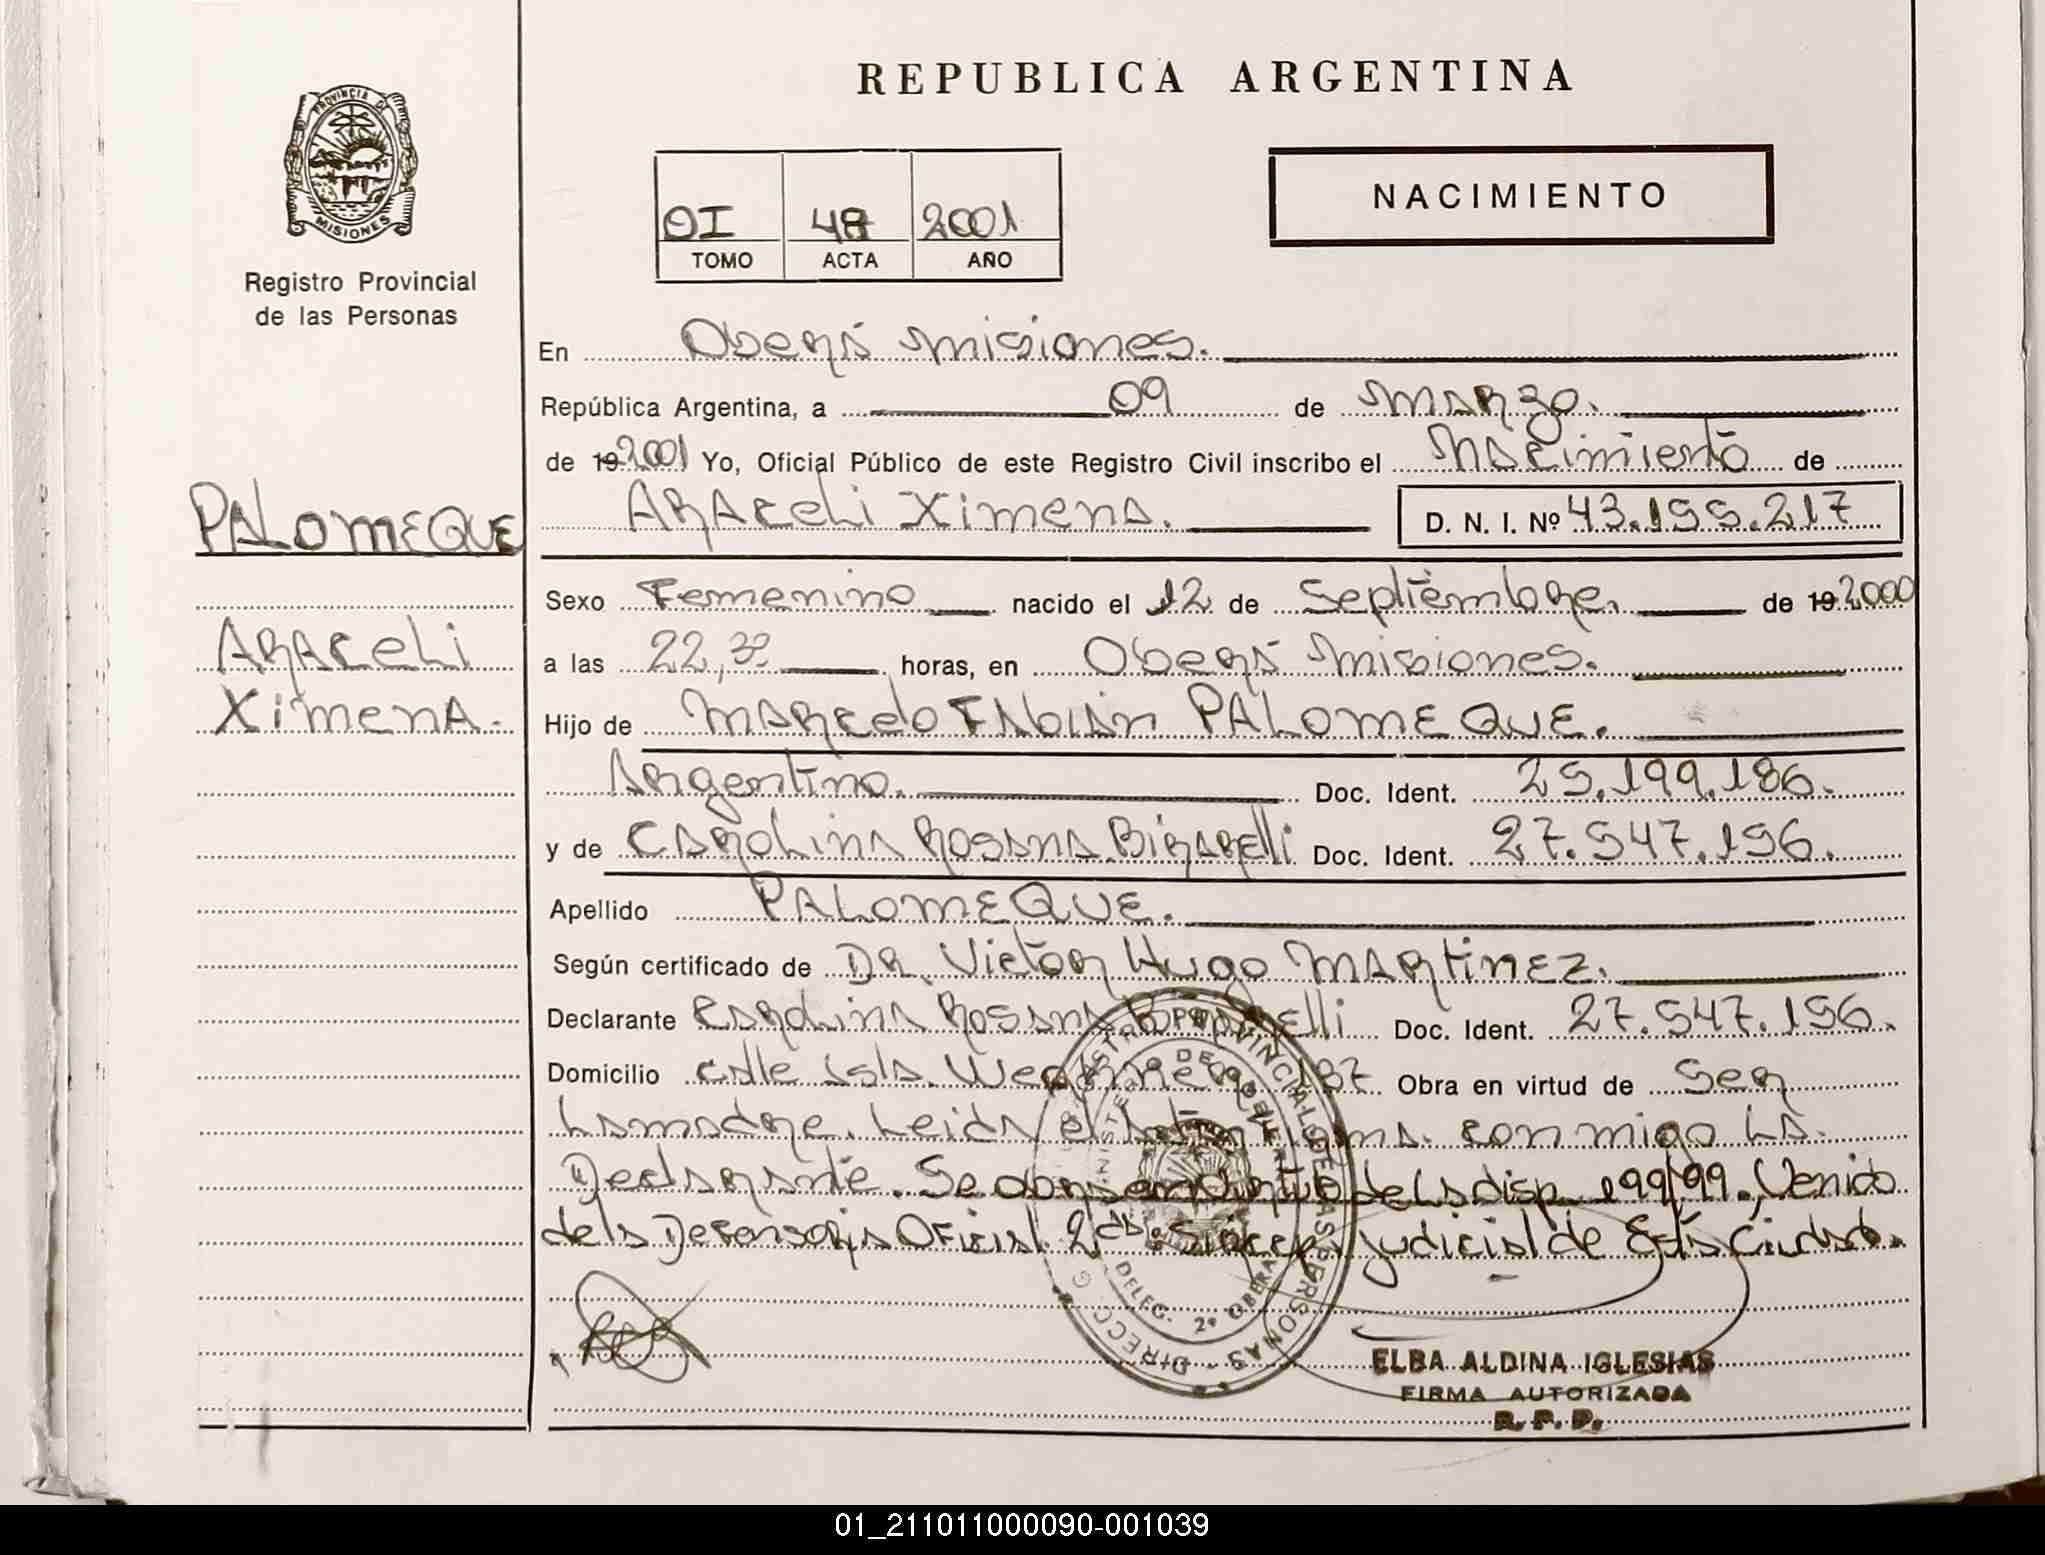 REPUBLICA ARGENTINA
PROVINCIA DE
MISIONES
Registro Provincial
de las Personas
NACIMIENTO
OI 48 2001
TOMO ACTA AÑO
En Oberá Misiones.
República Argentina, a 09 de Marzo.
de 19 2001 Yo, Oficial Público de este Registro Civil inscribo el Nacimiento de
PALOMEQUE
Araceli Ximena. D. N. I. Nº 43.155.217
Sexo Femenino nacido el 12 de Septiembre. de 19 2000
Araceli
a las 22,30 horas, en Oberá Misiones.
Ximena.
Hijo de Marcelo Fabián PALOMEQUE.
Argentino. Doc. Ident. 25.199.186.
y de Carolina Rosana Birarelli Doc. Ident. 27.547.156.
Apellido PALOMEQUE.
Según certificado de Dr. Victor Hugo Martinez.
Declarante Carolina Rosana Birarelli Doc. Ident. 27.547.156.
Domicilio calle isla 187 Obra en virtud de ser
La madre. Leida el conmigo La
Declarante. Se de la disp. 199/99. Venido
de la Defensoria Oficial 2da judicial de Esta Ciudad.
DELEG. 2º OBERA
ELBA ALDINA IGLESIAS
FIRMA AUTORIZADA
R. P. P.
01_211011000090-001039